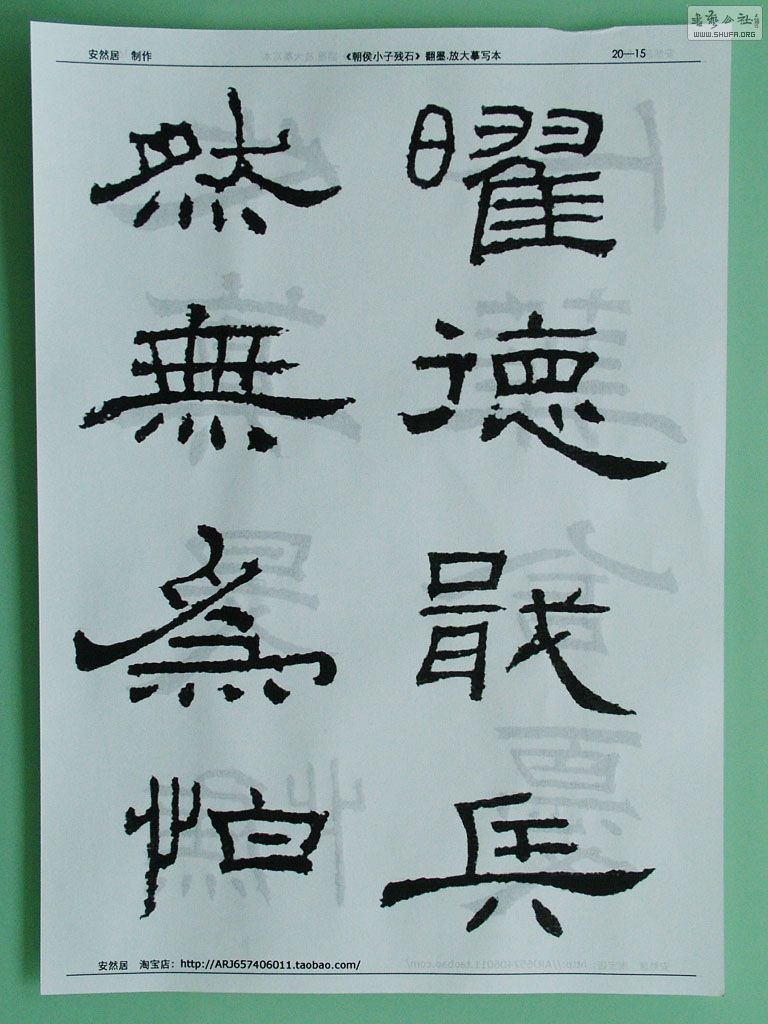 書藝公社
WWW.SHUFA.ORG
安然居 制作 《朝侯小子残石》翻墨.放大摹写本 20—15
曜德戢兵
然無爲怕
安然居 淘宝店：http://ARJ657406011.taobao.com/